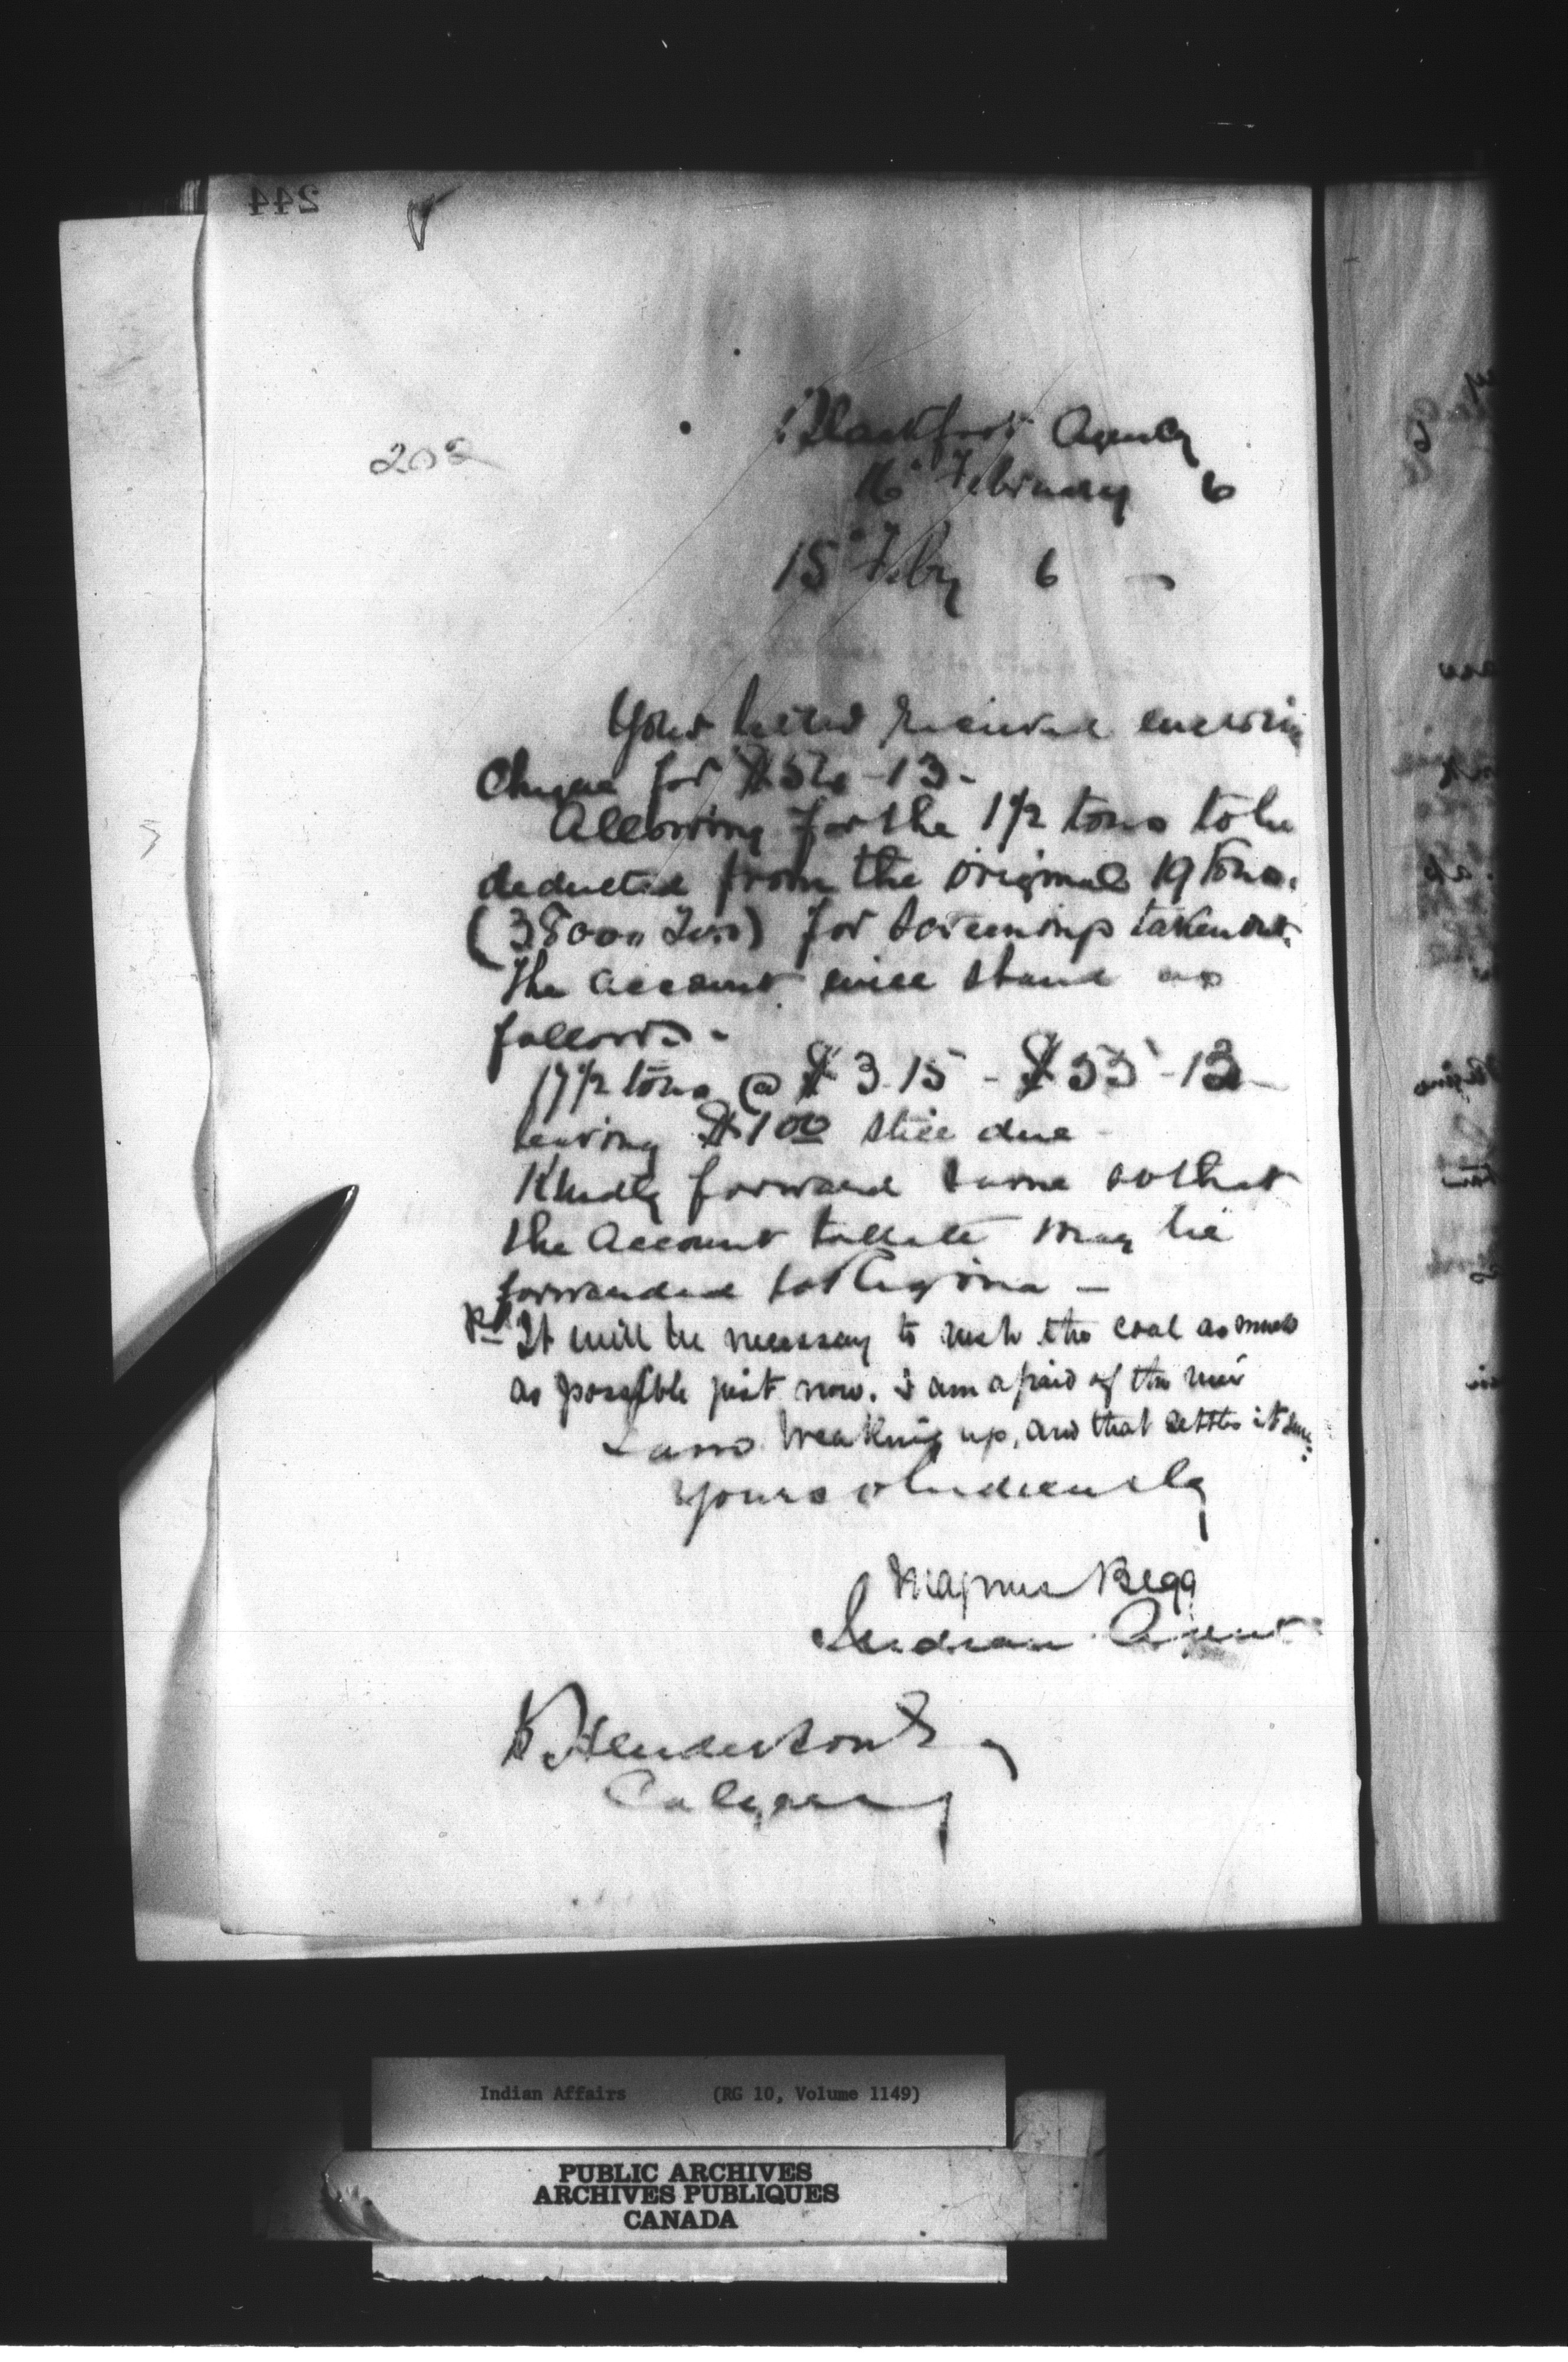 244
202
Blackfoot Agency
16" February 6
15" Feby 6
Your letter received enclosing
Cheque for $54-13-
Allowing for the 1 1/2 tons to be
deducted from the original 19 tons.
(38000 lbs) for screenings taken out.
The account will stand as
follows-
17 1/2 tons @ $3.15 - $55-13
leaving $1 00 still due-
Kindly forward same so that
the Account may be
forwarded to Regina -
PS It will be necessary to rush the coal as much
as possible just now. I am afraid of the river
breaking up, and that settles it
Yours obediently
Magnus Begg
Indian Agent
Henderson Esq
Calgary
Indian Affairs (RG 10, Volume 1149)
PUBLIC ARCHIVES
ARCHIVES PUBLIQUES
CANADA